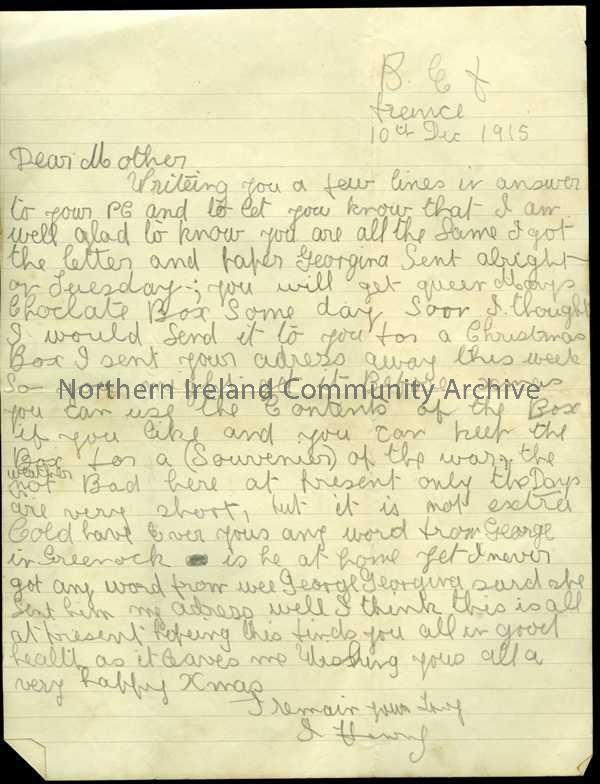 B. E. F
France
10th Dec 1915
Dear Mother
Writeing you a few lines in answer
to your PC and to let you know that I am
well glad to know you are all the Same I got
the letter and paper Georgina Sent alright
on Tuesday; you will get queen Marys
Choclate Box Some day Soon I thought
I would Send it to you for a Christmas
Box I sent your adress away this week
So you might get it Before xmas
Northern Ireland Community Archive
you can use the Contents of the Box
if you like and you can keep the
Box for a (Souvenier) of the war, the
weather
not Bad here at present only the Days
are very short, but it is not extra
Cold have Ever yous any word from George
in Greenock is he at home yet I never
got any word from wee George Georgina said she
Sent him my adress well I think this is all
at present hopeing this finds you all in good
health as it leaves me Wishing yous all a
very happy Xmas
I remain your
Henry